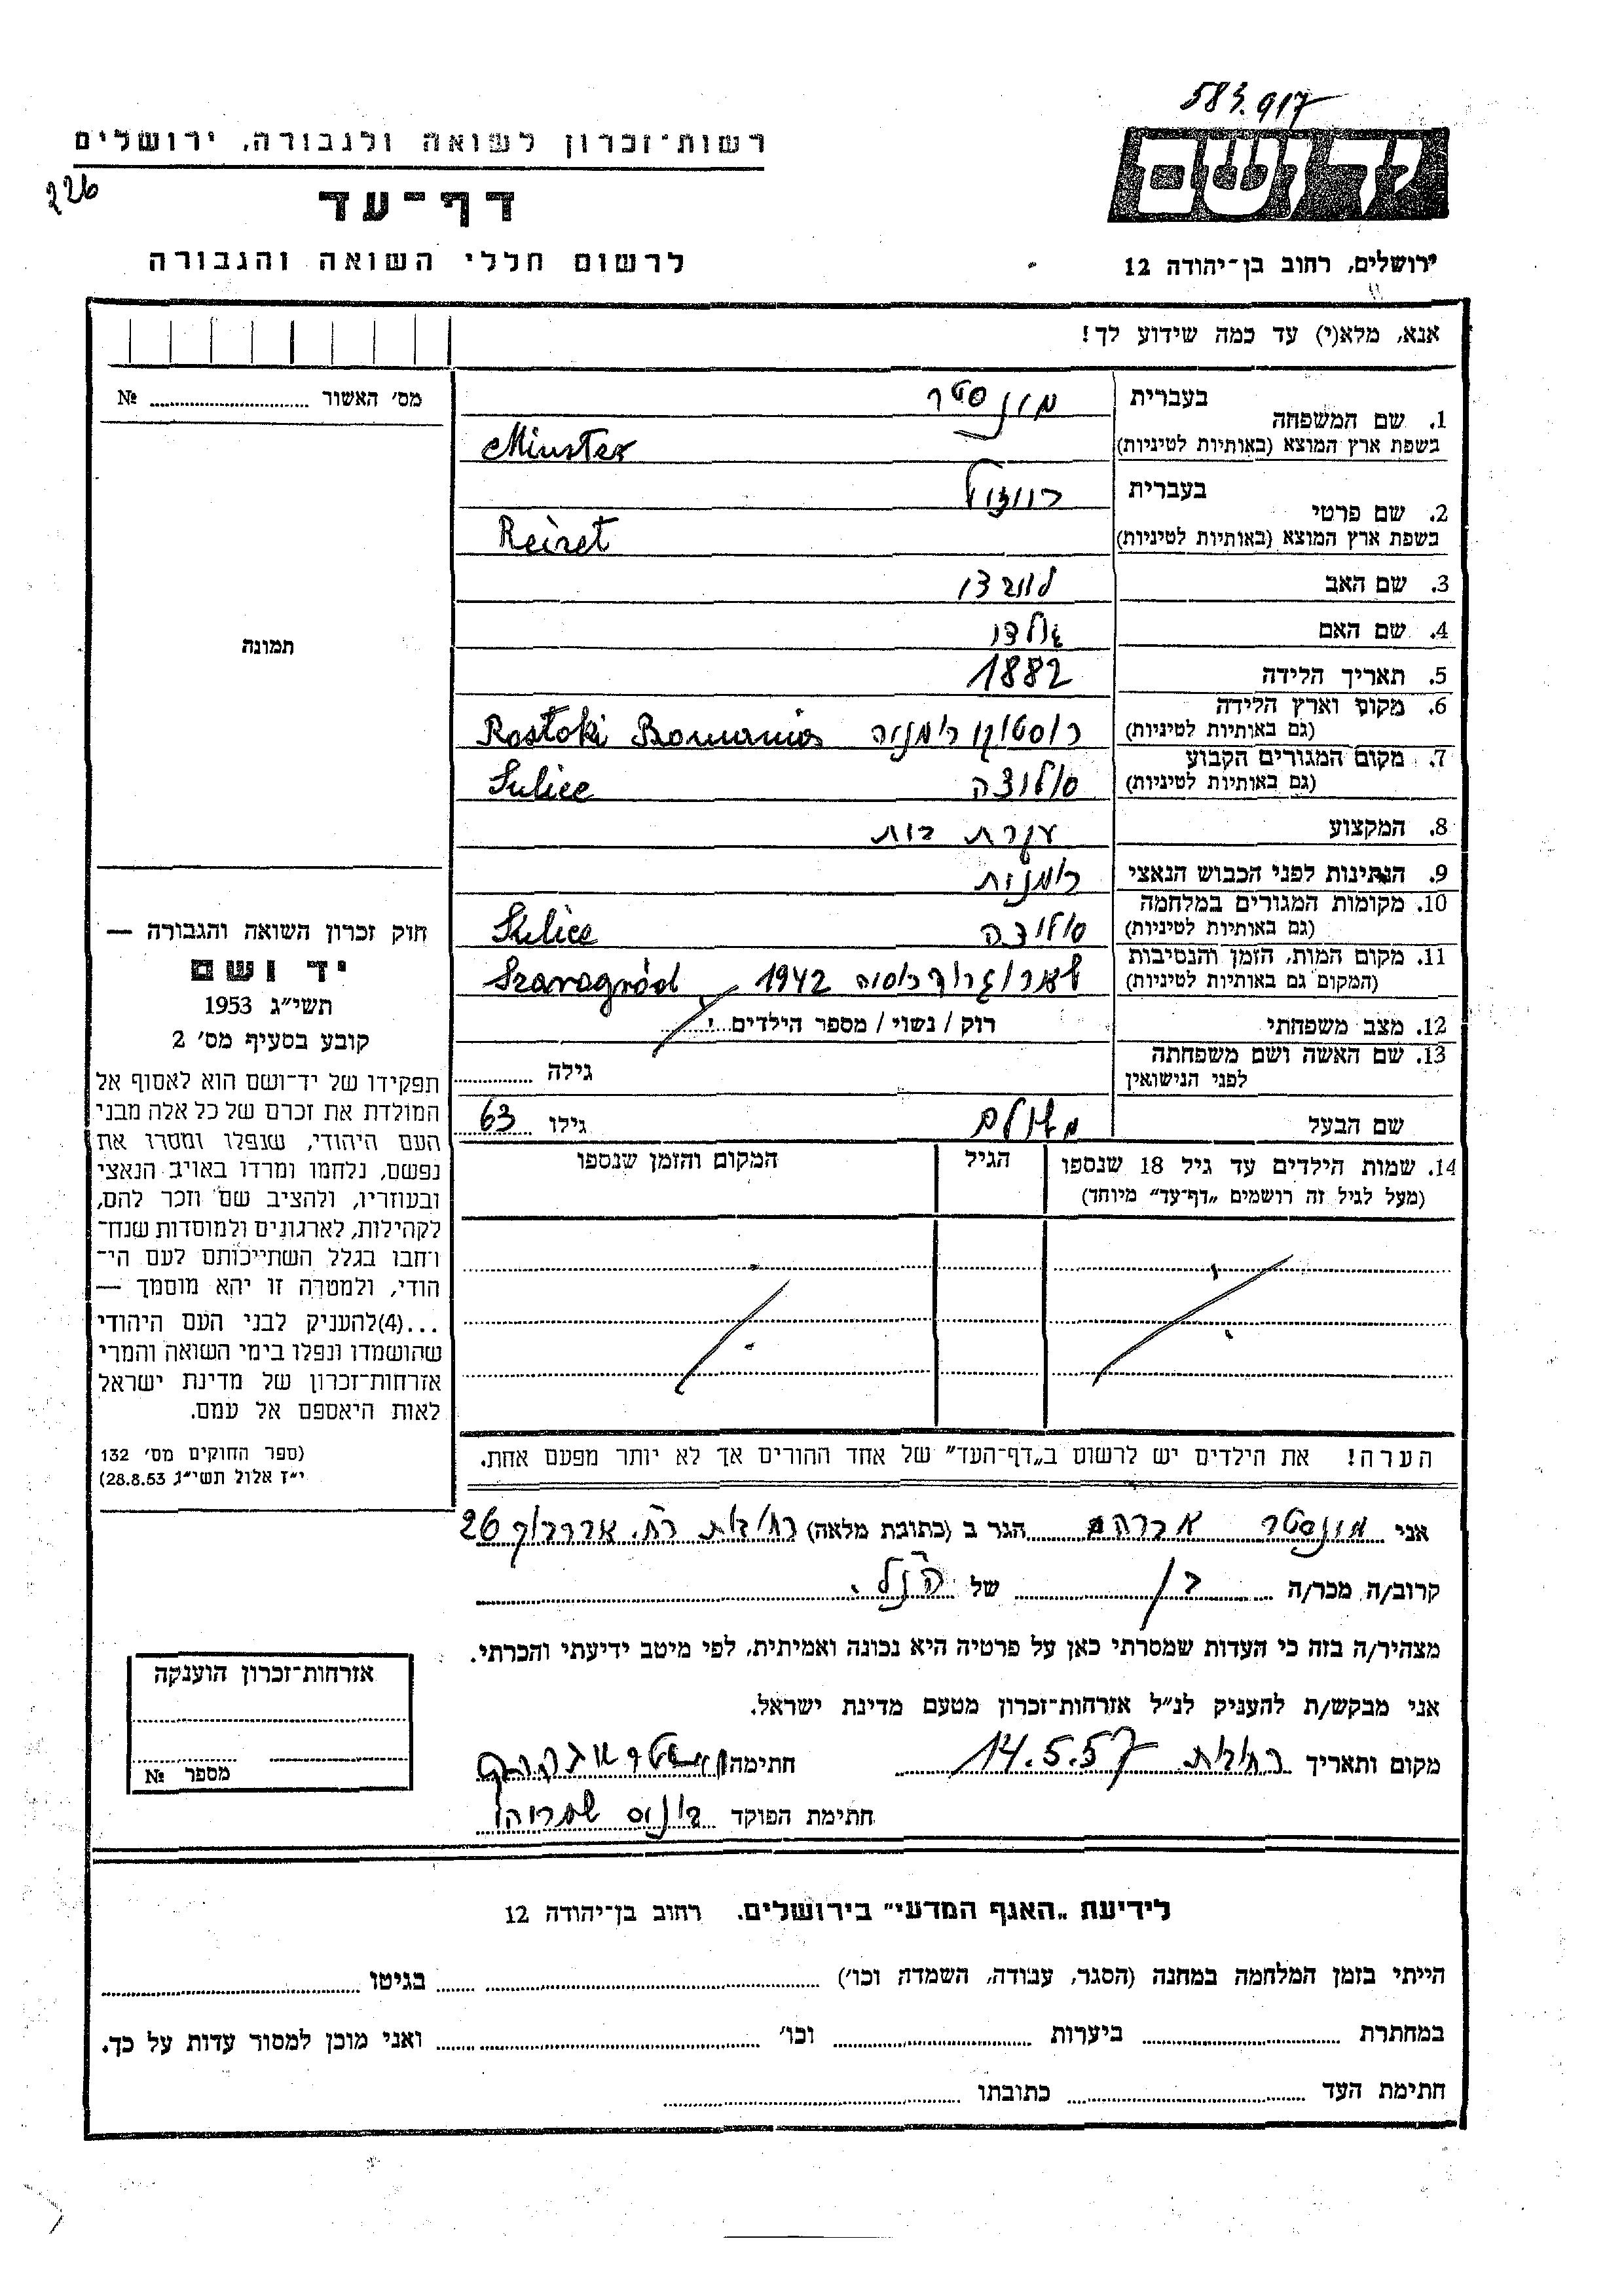 583.917
רשות־זכרון לשואה ולגבורה, ירושלים
226
ידושם
דף־עד
לרשום חללי השואה והגבורה
ירושלים, רחוב בן־יהודה 12
אנא, מלא(י) עד כמה שידוע לך!
מס׳ האשור № 
1. שם המשפחה
בעברית מונסטר
בשפת ארץ המוצא (באותיות לטיניות) Minster
2. שם פרטי
בעברית רייזל
בשפת ארץ המוצא (באותיות לטיניות)
3. שם האב
4. שם האם
5. תאריך הלידה 1882
6. מקום וארץ הלידה רוסטוקי רומניה Rostoki Romania
(גם באותיות לטיניות)
7. מקום המגורים הקבוע סוליצה Sulice
(גם באותיות לטיניות)
8. המקצוע עקרת בית
9. הנתינות לפני הכבוש הנאצי רומנית
10. מקומות המגורים במלחמה סוליצה Sulice
(גם באותיות לטיניות)
11. מקום המות, הזמן והנסיבות 1942 Szaragród
(המקום גם באותיות לטיניות)
12. מצב משפחתי רוק / נשוי / מספר הילדים
13. שם האשה ושם משפחתה גילה
לפני הנישואין
שם הבעל משולם גילו 63
14. שמות הילדים עד גיל 18 שנספו הגיל המקום והזמן שנספו
(מעל לגיל זה רושמים „דף־עד״ מיוחד)
הערה! את הילדים יש לרשום ב„דף־העד״ של אחד ההורים אך לא יותר מפעם אחת.
תמונה
חוק זכרון השואה והגבורה —
יד ושם
תשי״ג 1953
קובע בסעיף מס׳ 2
תפקידו של יד־ושם הוא לאסוף אל
המולדת את זכרם של כל אלה מבני
העם היהודי, שנפלו ומסרו את
נפשם, נלחמו ומרדו באויב הנאצי
ובעוזריו, ולהציב שם וזכר להם,
לקהילות, לארגונים ולמוסדות שנח־
רבו בגלל השתייכותם לעם הי־
הודי, ולמטרה זו יהא מוסמך —
...(4)להעניק לבני העם היהודי
שהושמדו ונפלו בימי השואה והמרי
אזרחות־זכרון של מדינת ישראל
לאות היאספם אל עמם.
(ספר החוקים מס׳ 132
י״ז אלול תשי״ג 28.8.53)
אני מונסטר אברהם הגר ב (כתובת מלאה) רח׳ 26
קרוב/ה מכר/ה בן של הנ״ל.
מצהיר/ה בזה כי העדות שמסרתי כאן על פרטיה היא נכונה ואמיתית, לפי מיטב ידיעתי והכרתי.
אני מבקש/ת להעניק לנ״ל אזרחות־זכרון מטעם מדינת ישראל.
מקום ותאריך 14.5.57 חתימה מונסטר אברהם
חתימת הפוקד
אזרחות־זכרון הוענקה
מספר №
לידיעת „האגף המדעי״ בירושלים, רחוב בן־יהודה 12
הייתי בזמן המלחמה במחנה (הסגר, עבודה, השמדה וכו׳) בגיטו
במחתרת ביערות וכו׳ ואני מוכן למסור עדות על כך.
חתימת העד כתובתו